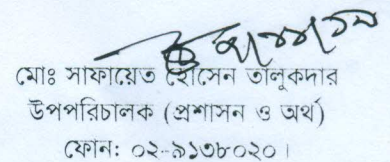 মোঃ সাফায়েত হোসেন তালুকদার
উপপরিচালক (প্রশাসন ও অর্থ)
ফোন: ০২-৯১৩৮০২০।